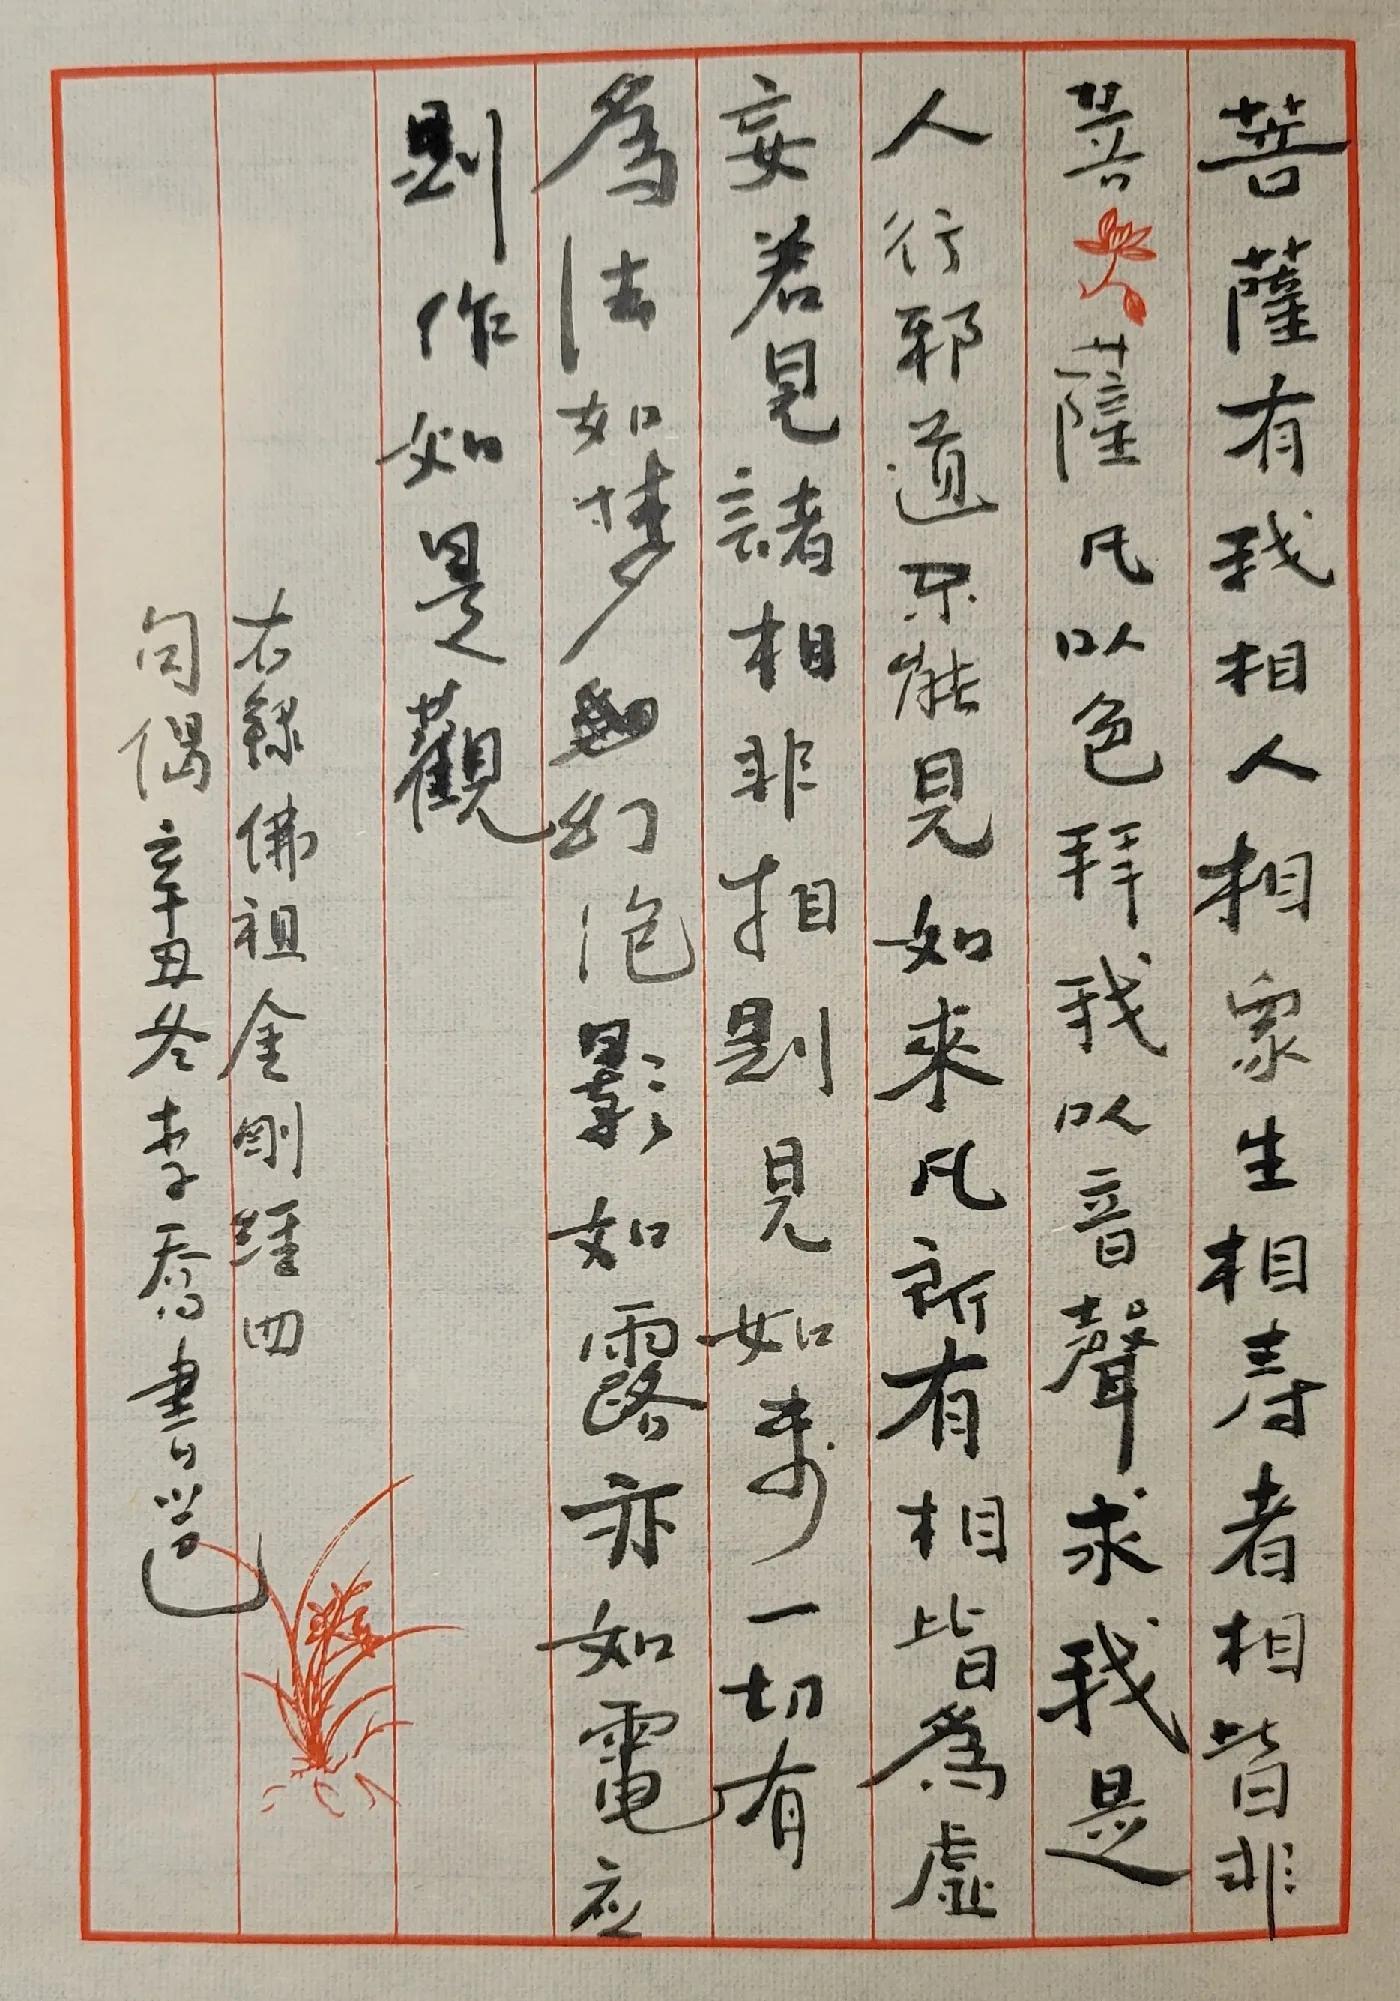 菩薩有我相人相眾生相壽者相皆非
菩薩凡以色拜我以音聲求我是
人行邪道不能見如來凡所有相皆為虛
妄若見諸相非相則見如來一切有
為法如夢幻泡影如露亦如電应
則作如是觀
右錄佛祖金剛經四
句偈辛丑冬李喬書